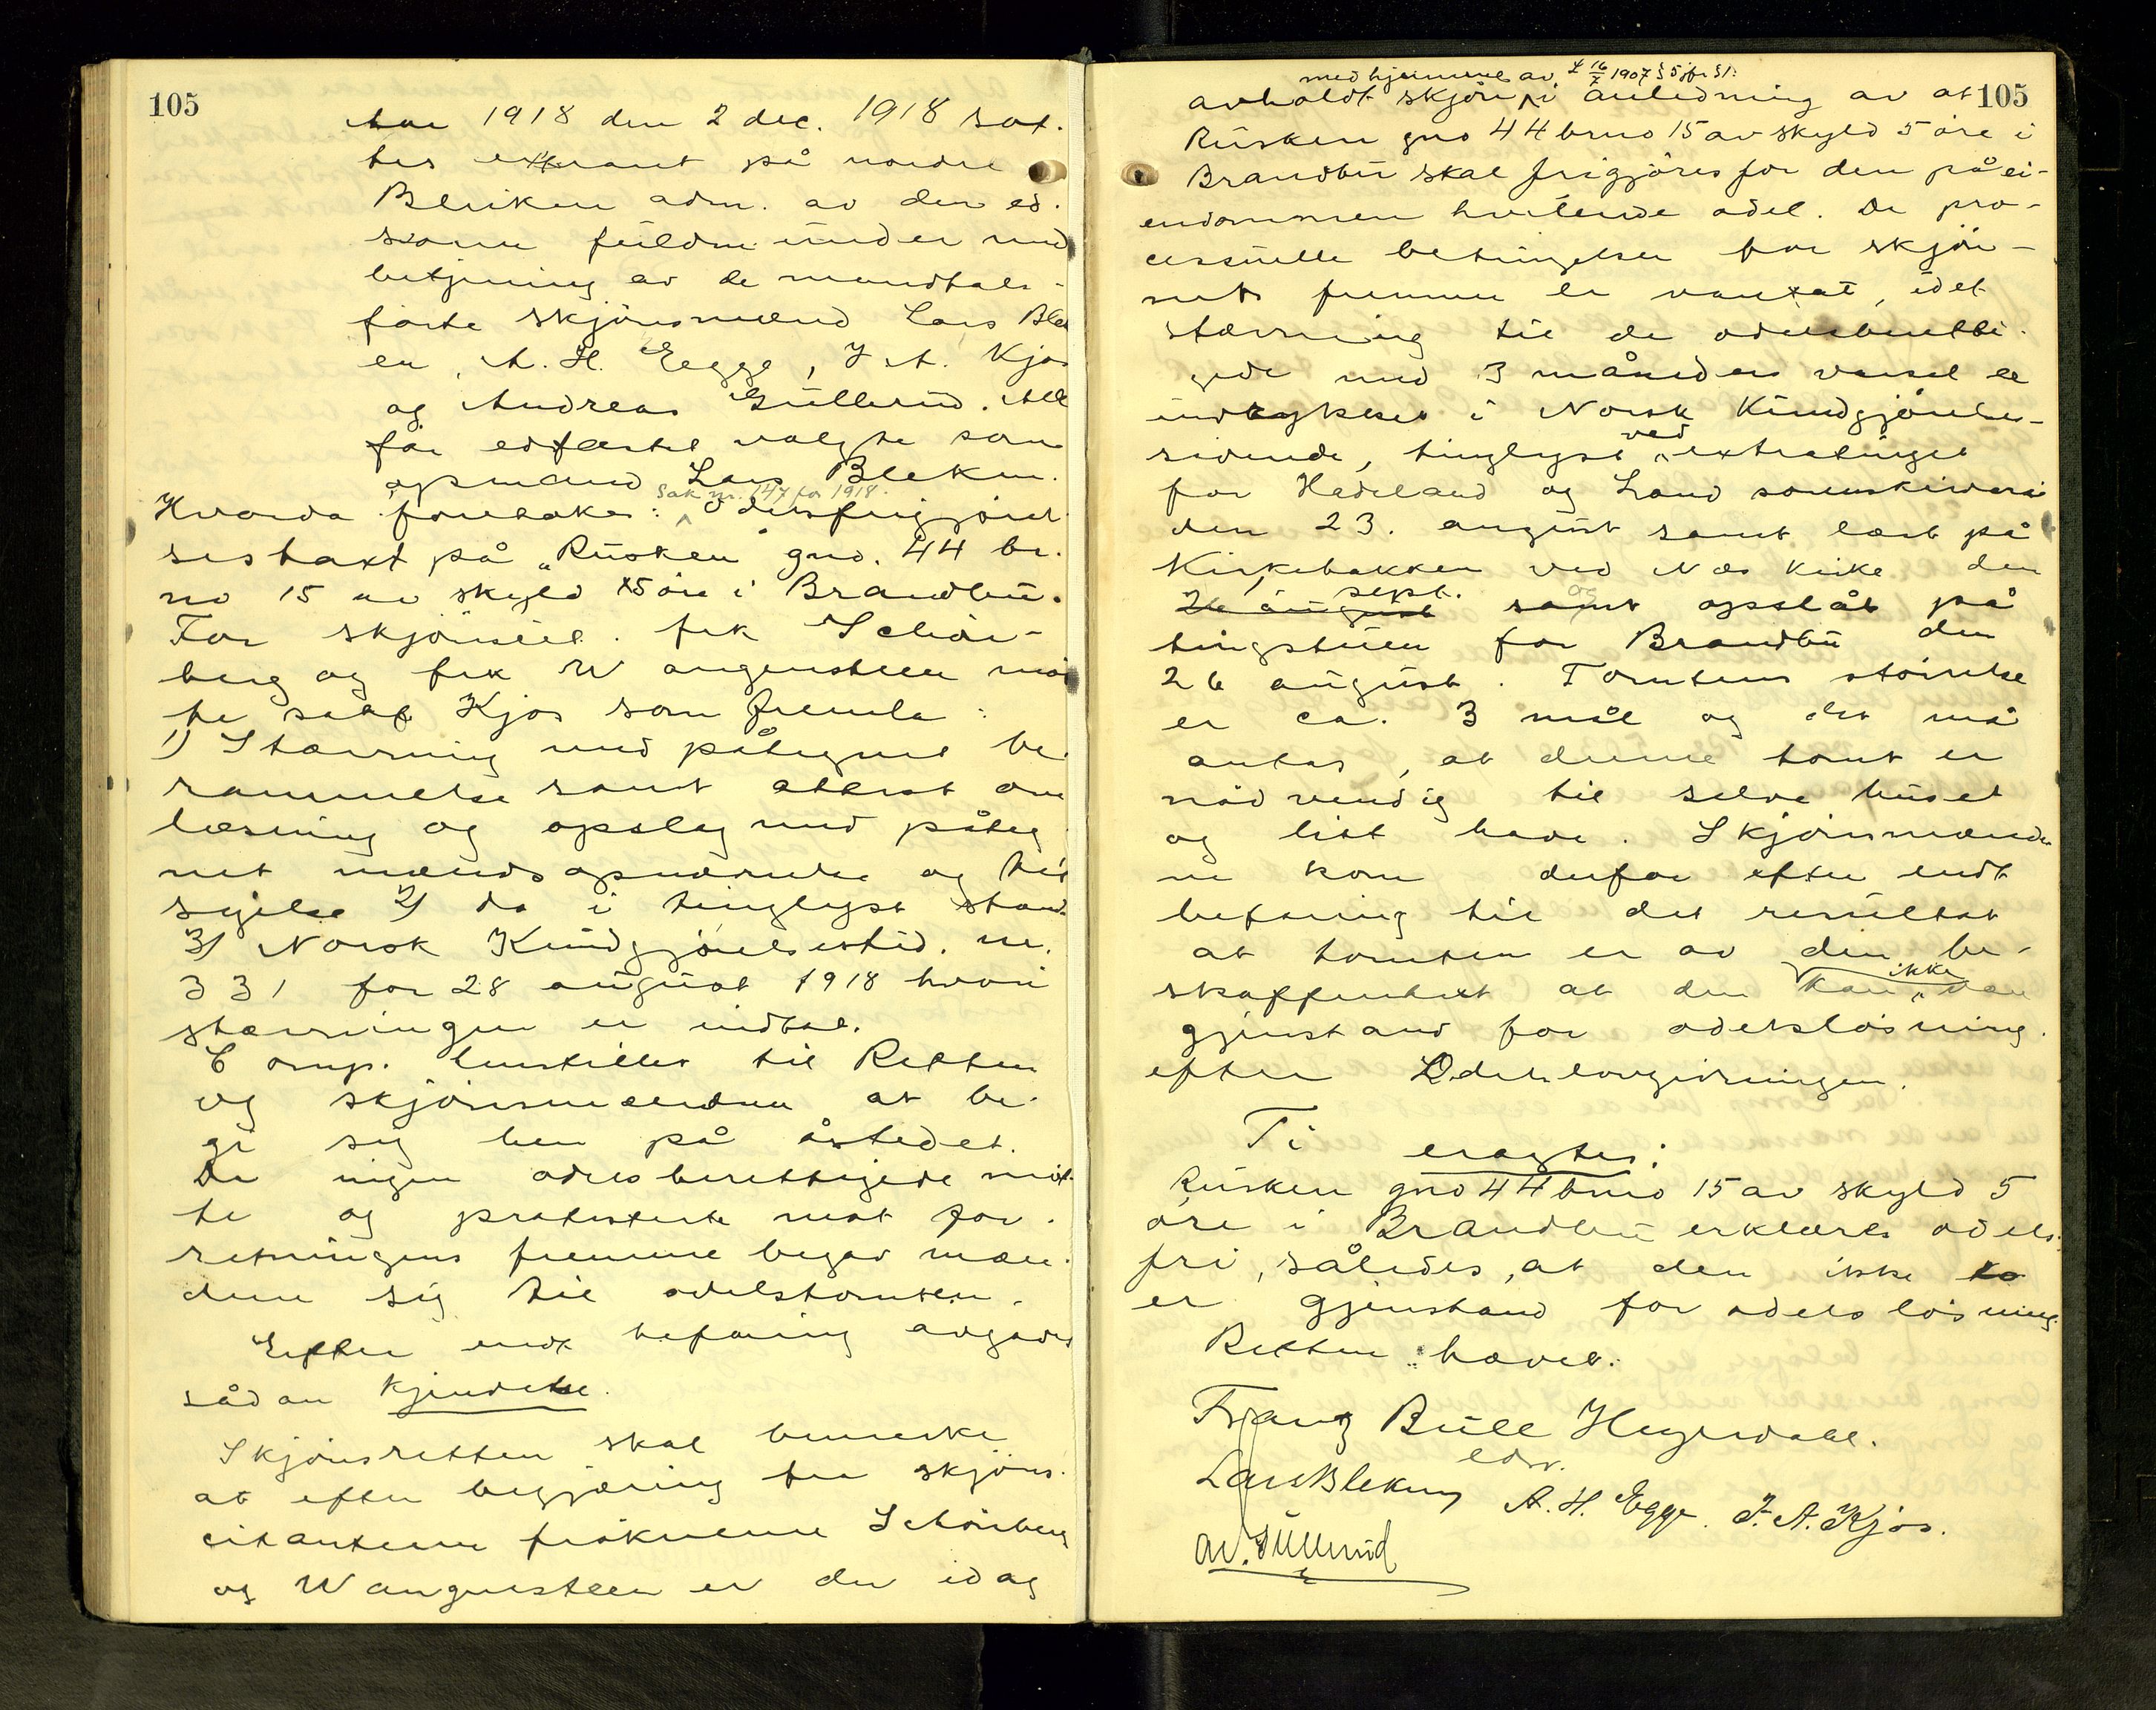 105
Aar 1918 den 2 dec. 1918 sat.
tes extraret på nordre
Bleiken adm. av den ed.
svorne fuldm. under med
betjening av de mandtals-
førte skjønsmænd Lars Blek
en, A. H. Egge, J. A. Kjos
og Andreas Gullerud. Alle
får edfæstet valgte som
opmand Lars Bleken.
Sak nr. 147 for 1918.
Hvorda foretokes: Odelsfrigjørel
sestaxt på "Rusken" gno. 44 br.
no 15 av skyld 5 øre i Brandbu.
For skjønnet frk Schøn-
berg og frk Wangensteen mø
te sakf Kjos som fremla:
1) Stævning med påtegnet be.
rammelse samt attest om
læsning og opslag med påteg
net mændsopnævnelse og til
sigelse 2) do i tinglyst stand
3) Norsk Kundgjørelsestid. nr.
331 for 28 august 1918 hvori
stævningen er indtat.
Comp. henstillet til Retten
og skjønsmændene at be.
gi sig hen på åstedet.
Da ingen odelsberettigede møt
te og protesterte mot for.
retningens fremme begav mæn.
dene sig til odelstomten.
Efter endt befaring avgaves
sådan kjendelse.
Skjønsretten skal bemerke
at efter begjæring fra skjøns.
citanterne frøknerne Schønberg
og Wangensteen er der idag
105
med hjemmel av L 16/7 1907 § 5 jfr § 1:
avholdt skjøn i anledning av at
Rusken gno 44 brno 15 av skyld 5 øre i
Brandbu skal frigjøres for den på ei-
endommen hvilende odel. De pro-
cessuelle betingelser for skjøn-
nets fremme er varetat, idet
stævning til de odelsberetti-
gede med 3 måneders varsel er
indrykket i Norsk Kundgjørelses-
tidende, tinglyst ved extratinget
for Hadeland og Land sorenskriveri
den 23. august samt læst på
Kirkebakken ved Næs kirke den
26 august sept. samt og opslåt på
tingstuen for Brandbu den
26 august. Tomtens størrelse
er ca. 3 mål og det må
antas, at denne tomt er
nødvendig til selve huset
og litt have. Skjønsmænde
ne kom derfor efter endt
befaring til det resultat
at tomten er av den be-
skaffenhet at den kan ikke være
gjenstand for odelsløsning
efter Odelslovgivningen.
Ti
eragtes:
Rusken gno 44 brno 15 av skyld 5
øre i Brandbu erklæres odels.
fri, således, at den ikke
er gjenstand for odelsløsning.
Retten hævet.
Franz Bull Heyerdahl.
edsv.
Lars Bleken A. H. Egge. J. A. Kjos.
An. Gullerud